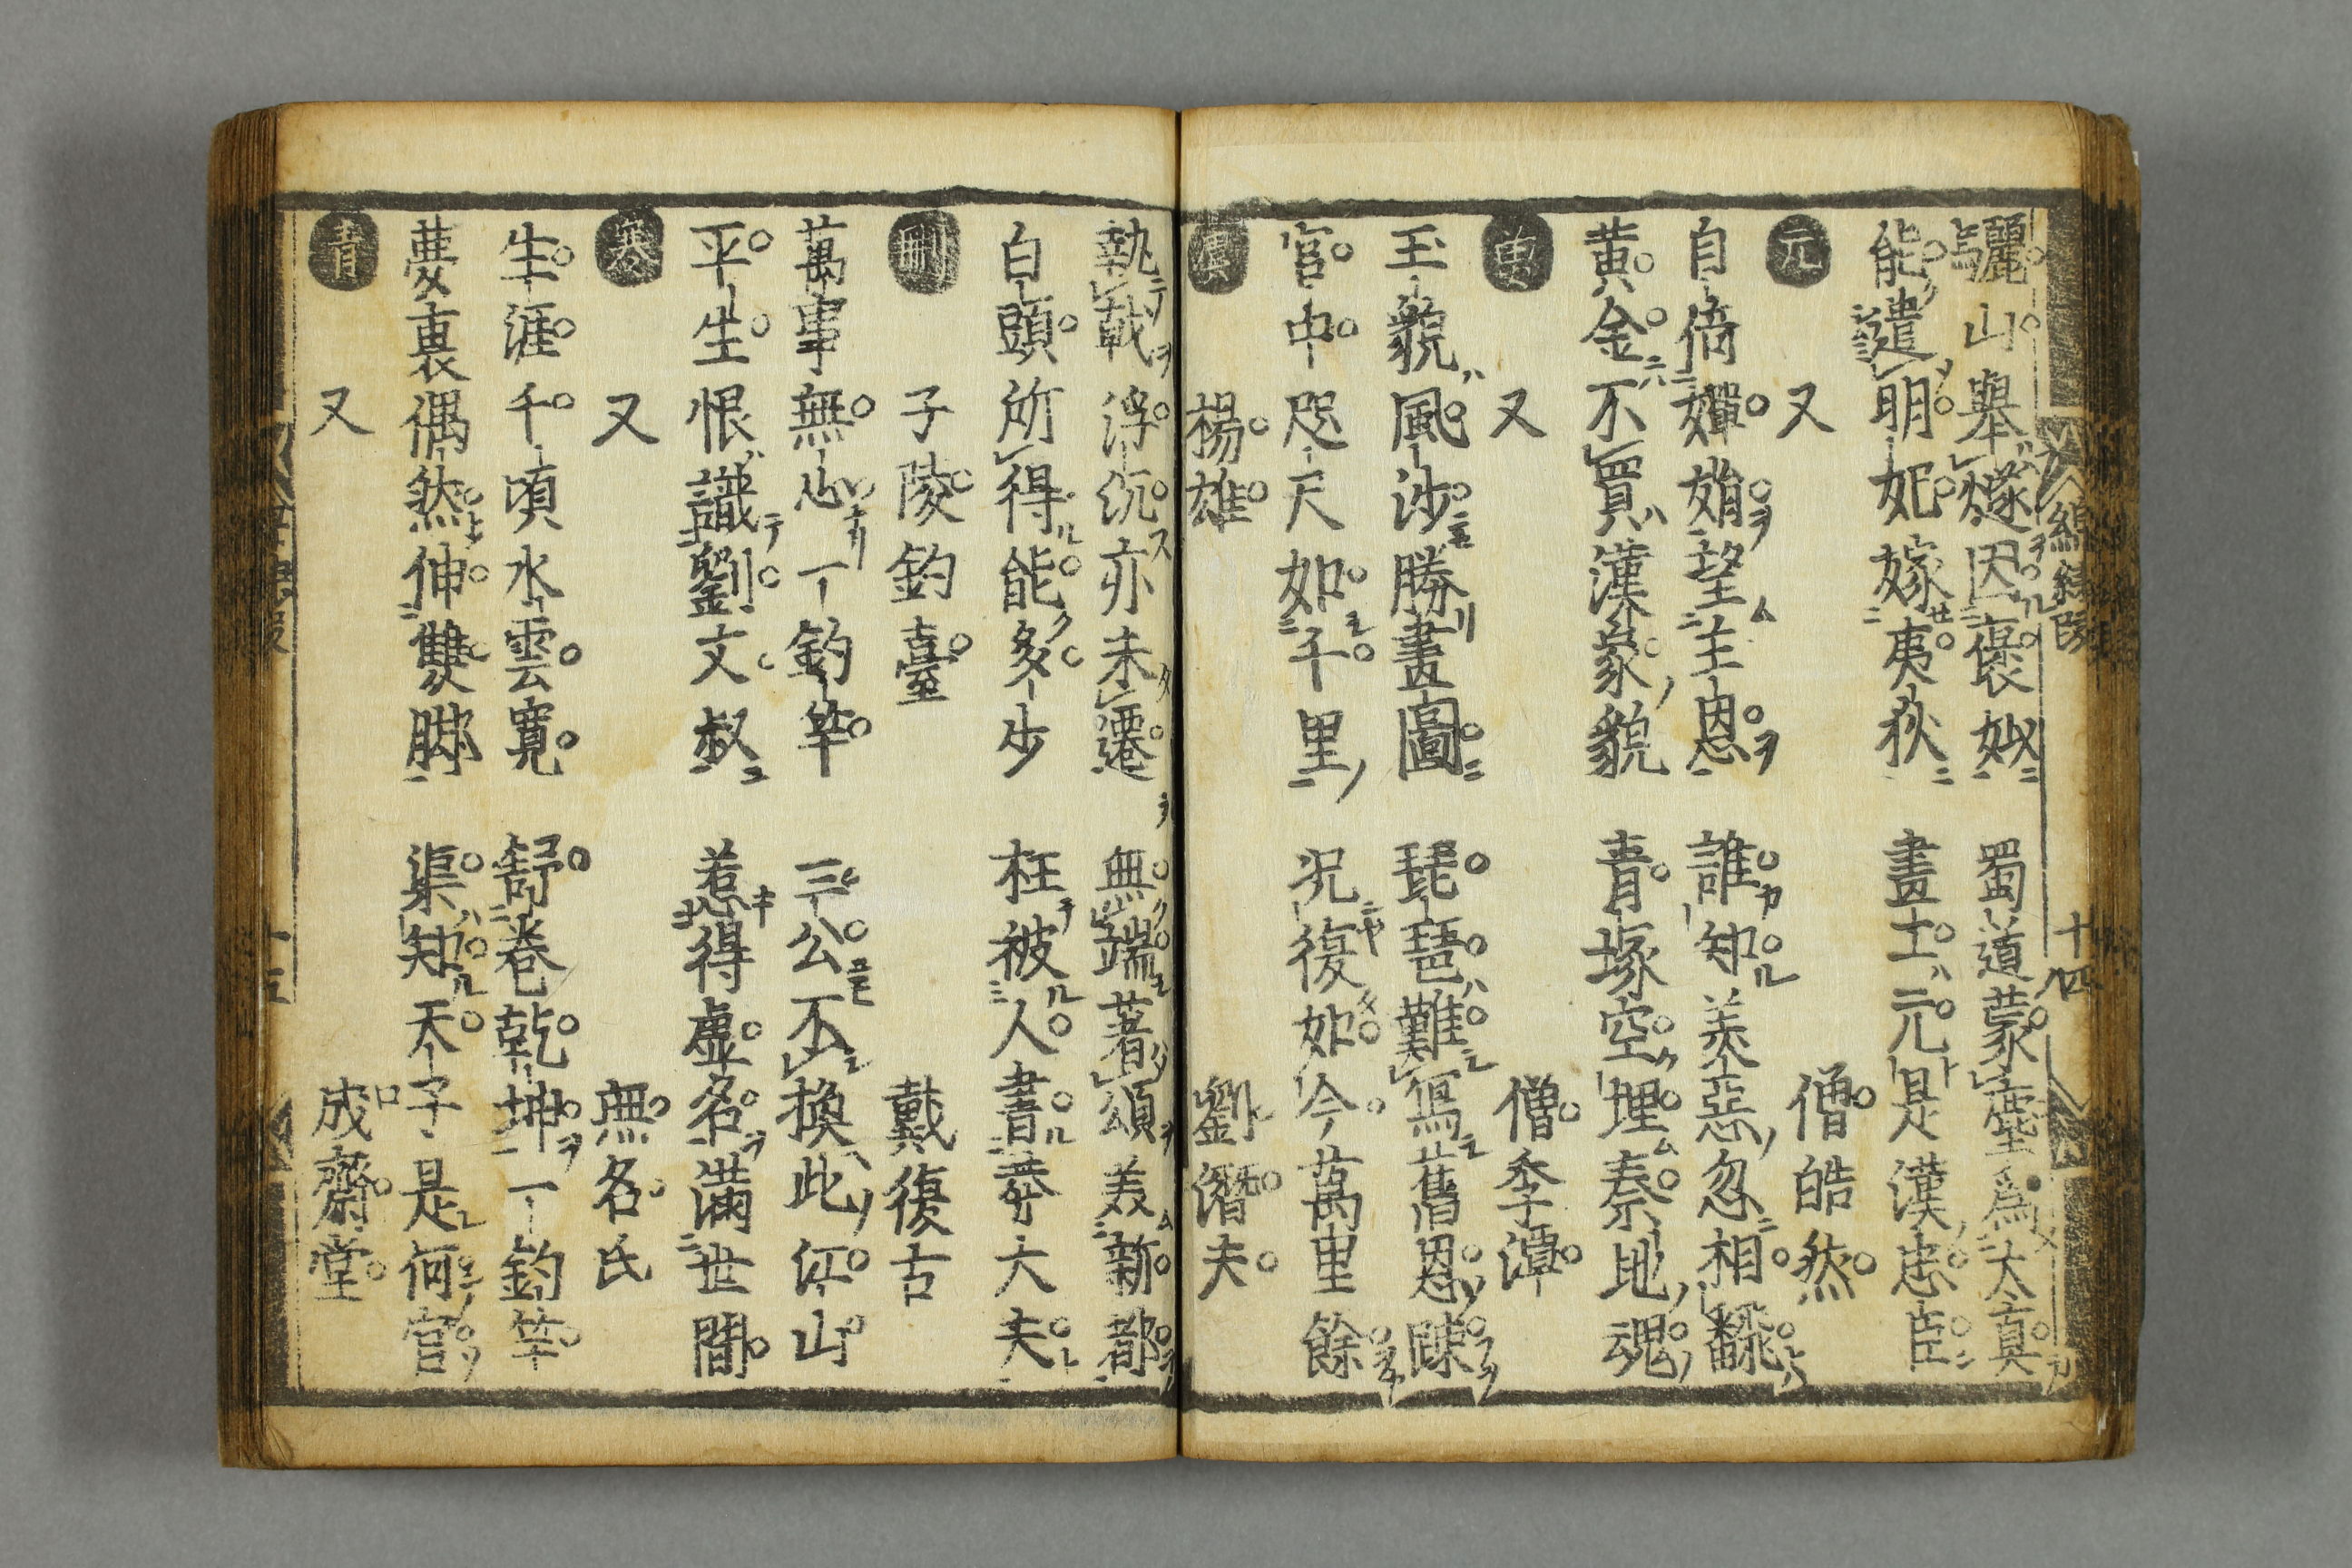 驪山舉燧因褒姒　蜀道蒙塵爲太真
能遣明妃嫁夷狄　畫士元是漢忠臣
元　又　僧皓然
自倚嬋娟望主恩　誰知美惡忽相翻
黄金不買漢家貌　青塚空埋秦地魂
又　僧季潭
玉貌風沙勝畫圖　琵琶難寫舊恩踈
官中咫天如千里　况復如今萬里餘
真　楊雄　劉潛夫
執戟浮沉亦未遷　無端著頌美新都
白頭所得能多少　枉被人書莽大夫
刪　子陵釣臺　戴復古
萬事無心一釣竿　三公不換此江山
平生恨識劉文叔　惹得虚名滿世間
寒　又　無名氏
生涯千頃水雲寬　舒卷乾坤一釣竿
夢裏偶然伸雙脚　渠知天子是何官
青　又　成齋堂
錦繡段　十四